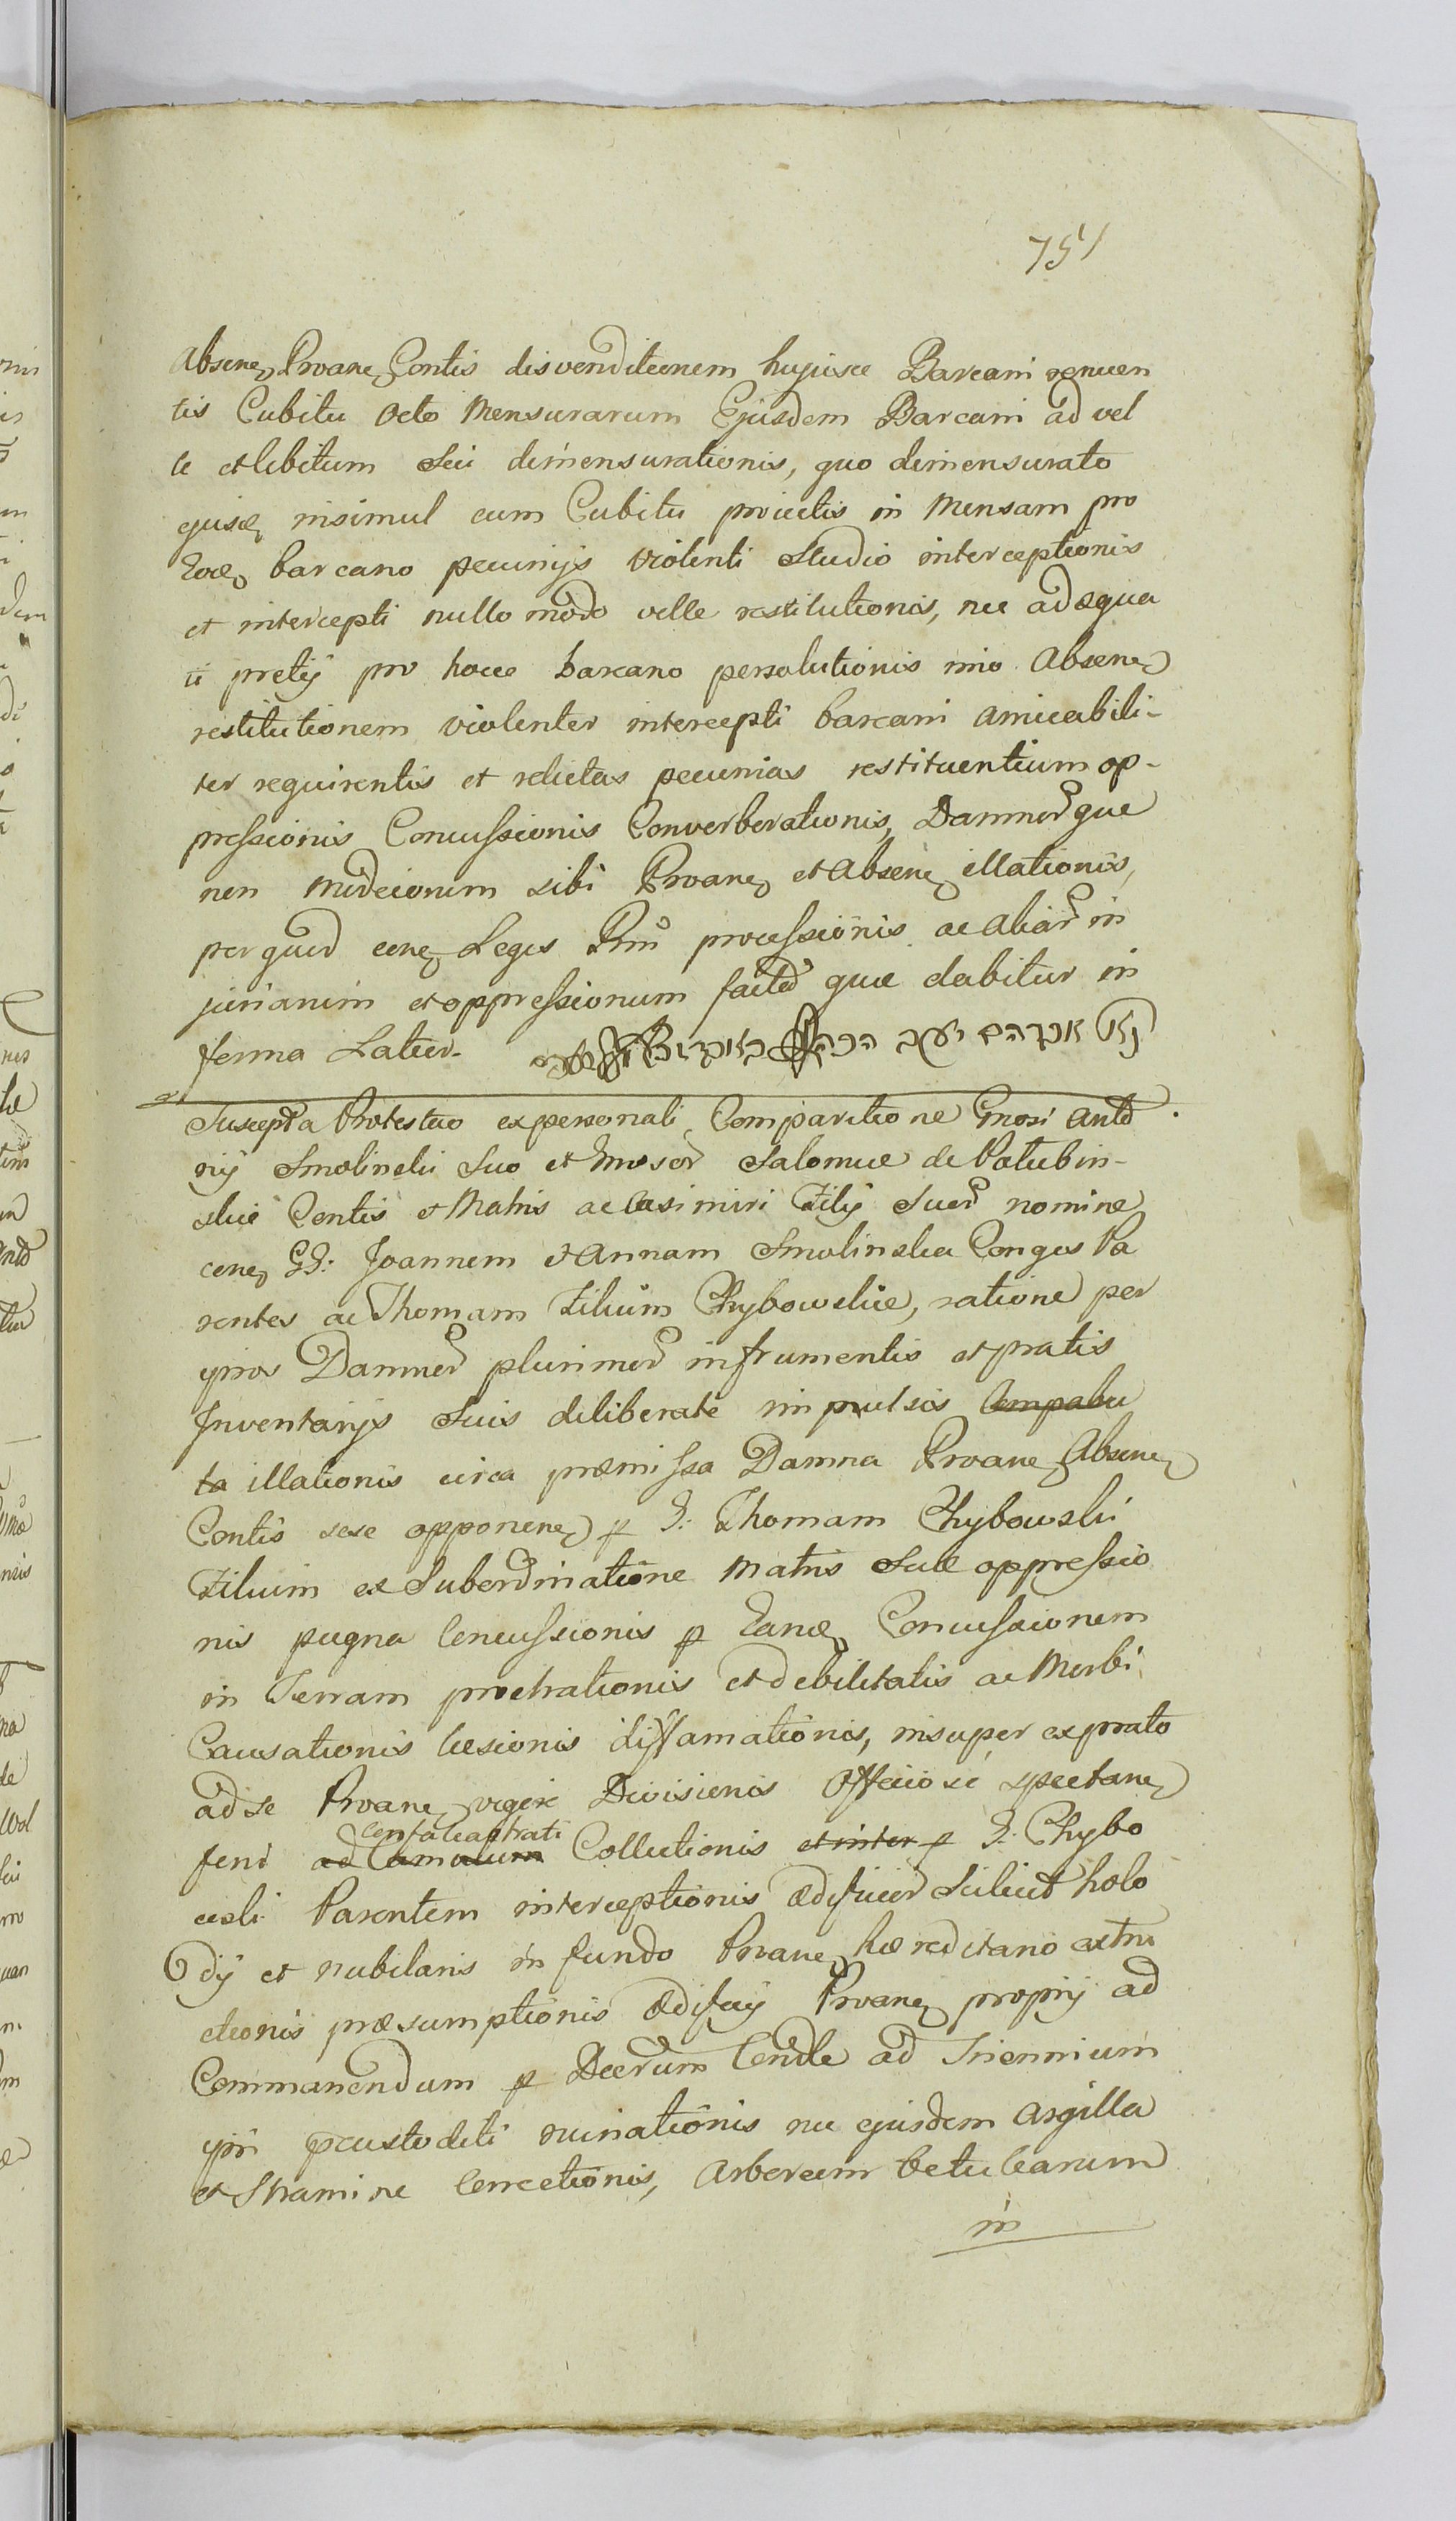 751
Absene, Proane, Contis disvenditionem hujusce Barcani renuen
tis Cubitu Octo Mensurarum Ejusdem Barcani ad vel
le et libitum Sui dimensurationis, quo dimensurato
insimul cum Cubitu proiectis in Mensam pro
barcano pecunijs violenti Studio interceptionis
et intercepti nullo modo velle restitutionis, nec adæqua
ti pretij pro hocce barcano persolutionis imo Absene
restitutionem violenter intercepti barcani amicabili-
ter requirentis et relictas pecunias restituentium op-
pressionis Concussionis Converberationis, Damnorque
non mediocrium sibi Proane, et Absene, illationis,
per quid cone, Leges Rni processionis ac aliar in
juriarum et oppressionum factar quæ dabitur in
forma Latior. נאו אברהם יעקב
Suscepta Protestao ex personali Comparitione Gnosi Anto
nij Smolinski Suo et Salomeæ de Potubin-
skie Contis et Matris ac Casimiri Filij Suor nomine
cone, GG: Joannem et Annam Smolinska Conges Pa
rentes ac Thomam Filium Chybowskie, ratione per
ipsos Damnor plurimor in frumentis et pratis
Inventarijs Suis deliberate impulsis Compabu
ta illationis circa præmissa Damna Proane, Absene,
Contis sese opponene, p G: Thomam Chybowski
Filium ex Subordinatione Matris Suæ oppressio
nis pugna Concussionis p Concussionem
in Terram prostrationis et debilitatis ac Morbi
Causationis læsionis diffamationis, insuper ex prato
ad se Proane, vigore Divisionis Officiose spectane,
feni ad Camulum Collectionis et inter p G: Chybo
wski Parentem interceptionis ædificior Scilicet holo
dij et nubilaris in fundo Proane, hæreditario extru
ctionis præsumptionis Ædificij Proane, proprij ad
Commanendum p Decrum Condle ad Triennium
ipsi custoditi ruinationis nec ejusdem argilla
et Stramine Concetionis, Arborum betulearum
in